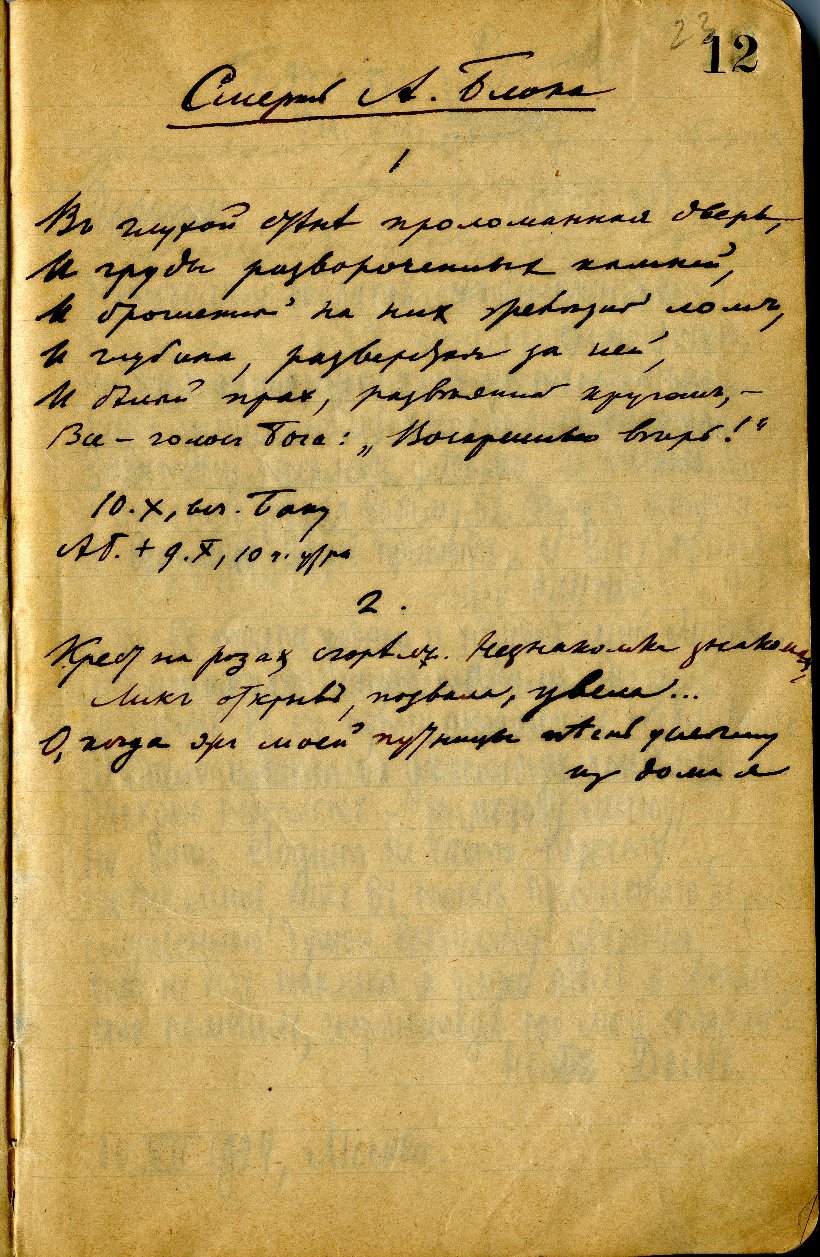 23
12
Смерть А. Блока
1
Въ глухой стѣнѣ проломанная дверь,
И груды развороченных камней,
И брошенный на них железный ломъ,
И глубина, разверстая за ней,
И бѣлый прах, развѣянный кругомъ, –
Все – голосъ Бога: „Воскресенью вѣрь!“
10.X, веч. Баку
АБ. + 9.X, 10 ч. утра
2.
Крест на розах сгорѣлъ. Незнакомка знакомая,
Ликъ открывъ, позвала, увела...
О, когда жъ моей путницы пѣснь услышу
из дома я